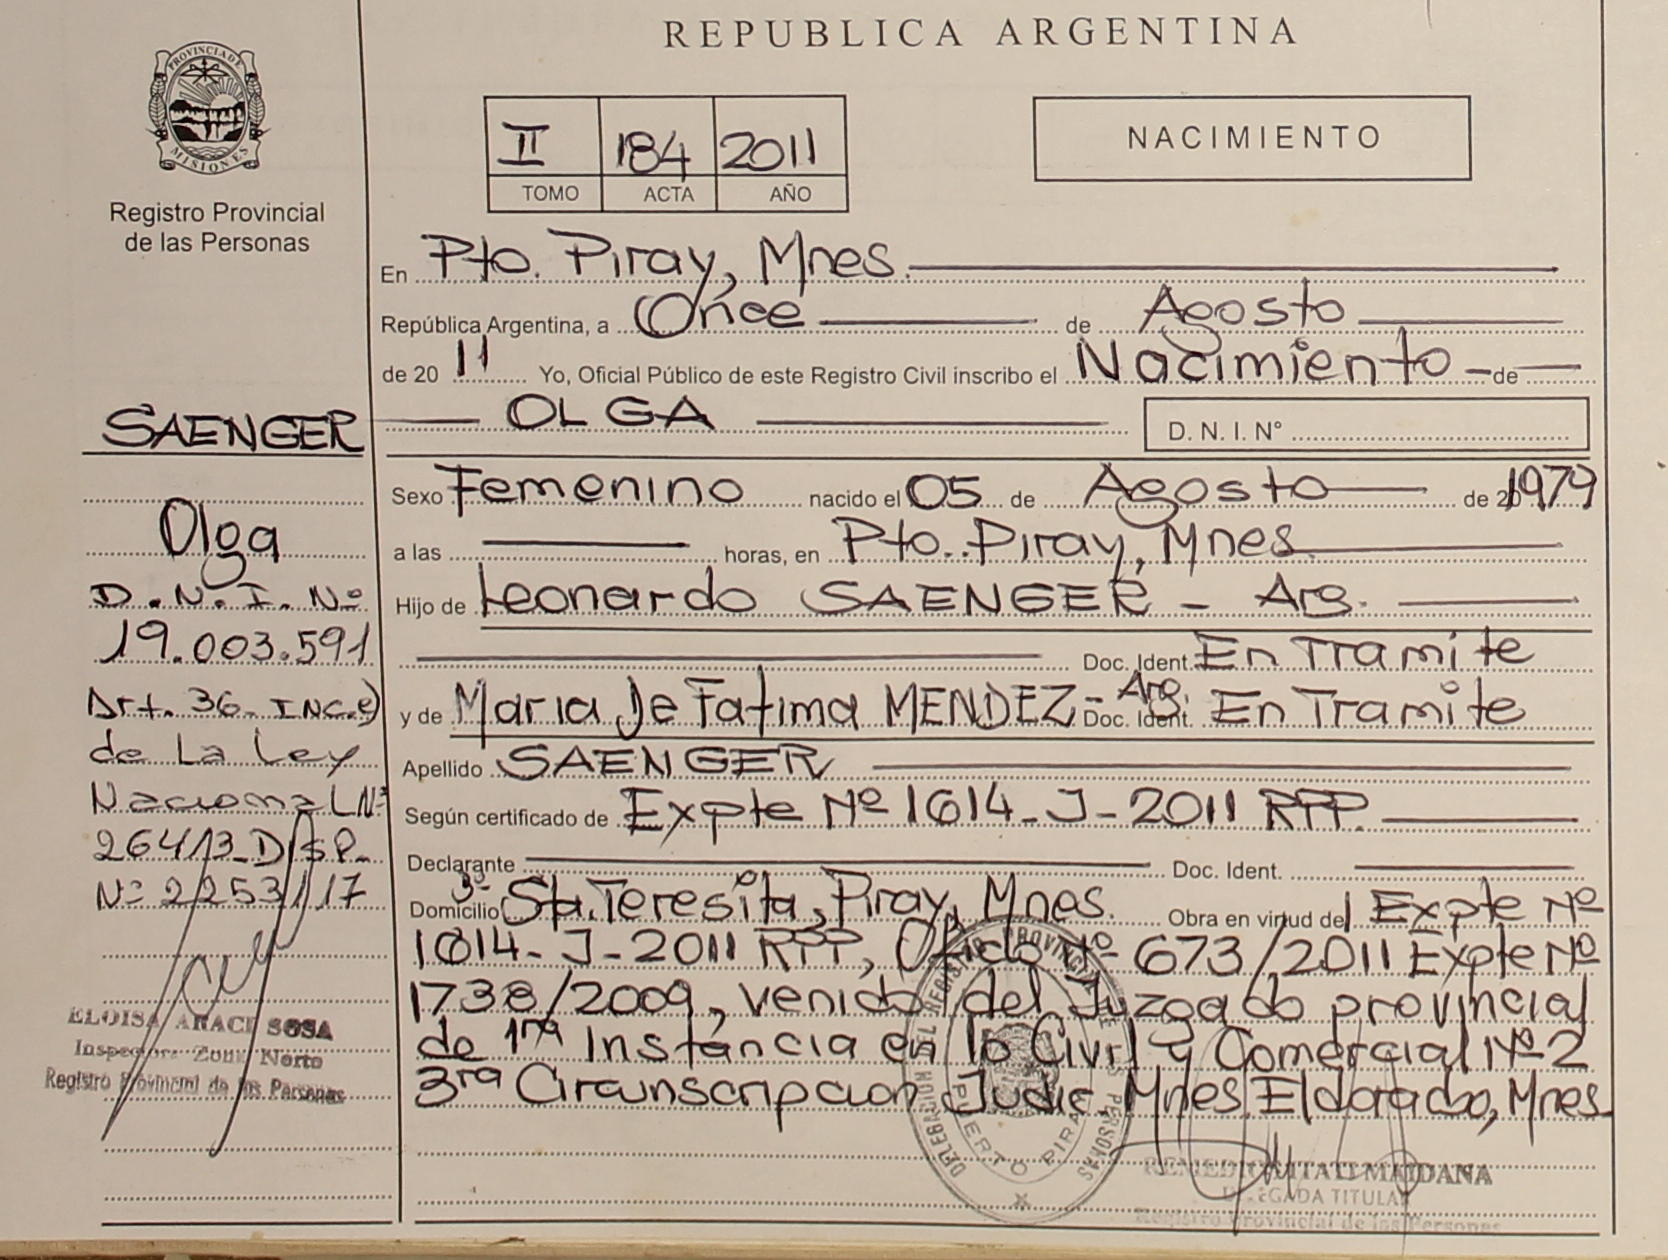 REPUBLICA ARGENTINA
PROVINCIA DE MISIONES
Registro Provincial
de las Personas
II 184 2011
TOMO ACTA AÑO
NACIMIENTO
En Pto. Piray, Mnes.
República Argentina, a Once de Agosto
de 20 11 Yo, Oficial Público de este Registro Civil inscribo el Nacimiento de
OLGA D. N. I. N°
Sexo Femenino nacido el 05 de Agosto de 20 1979
a las horas, en Pto. Piray, Mnes.
Hijo de Leonardo SAENGER - Arg.
Doc. Ident. En Tramite
y de Maria De Fatima MENDEZ - Arg. Doc. Ident. En Tramite
Apellido SAENGER
Según certificado de Expte Nº 1614-J-2011 RPP.
Declarante Doc. Ident.
Domicilio Bº Sta. Teresita, Piray, Mnes. Obra en virtud del Expte Nº
1614-J-2011 RPP, Oficio Nº 673/2011 Expte Nº
1738/2009, venido del Juzgado provincial
de 1ra Instancia en lo Civil y Comercial Nº 2
3ra Circunscripcion Judic. Mnes. Eldorado, Mnes.
SAENGER
Olga
D.N.I. Nº
19.003.591
Art. 36 INC.c)
de La Ley
Nacional Nº
26413-DISP.
Nº 2253/17
ELOISA ARACI SOSA
Inspectora Zona Norte
Registro Provincial de las Personas
DELEGACION DEL REGISTRO PROVINCIAL DE LAS PERSONAS
PUERTO PIRAY
MAIDANA
DELEGADA TITULAR
Registro Provincial de las Personas